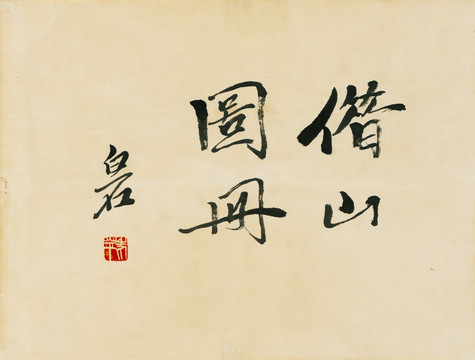 借山
圖冊
白石